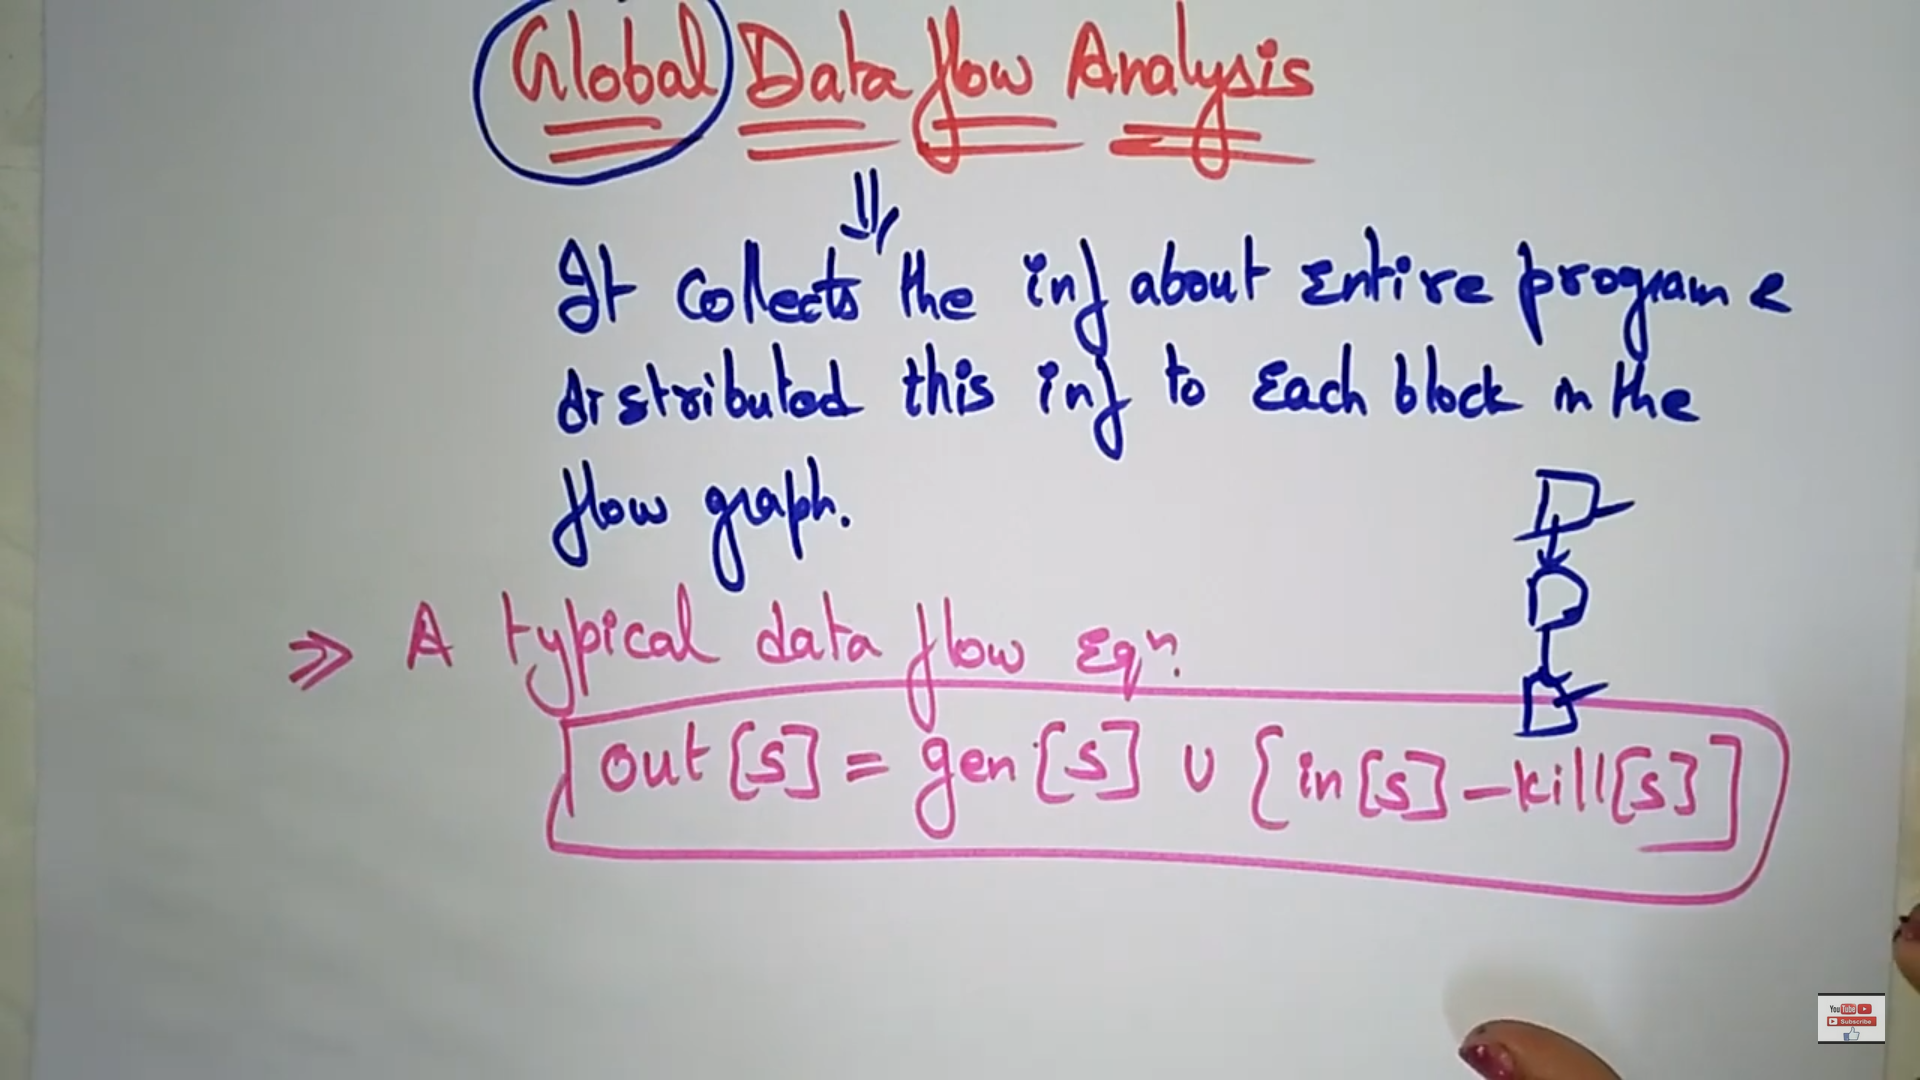 Global Data flow Analysis
It collects the inf about Entire program &
distributed this inf to Each block in the
flow graph.
⇒ A typical data flow Eqn.
out[s] = gen[s] ∪ {in[s]-kill[s]]
YouTube
Subscribe